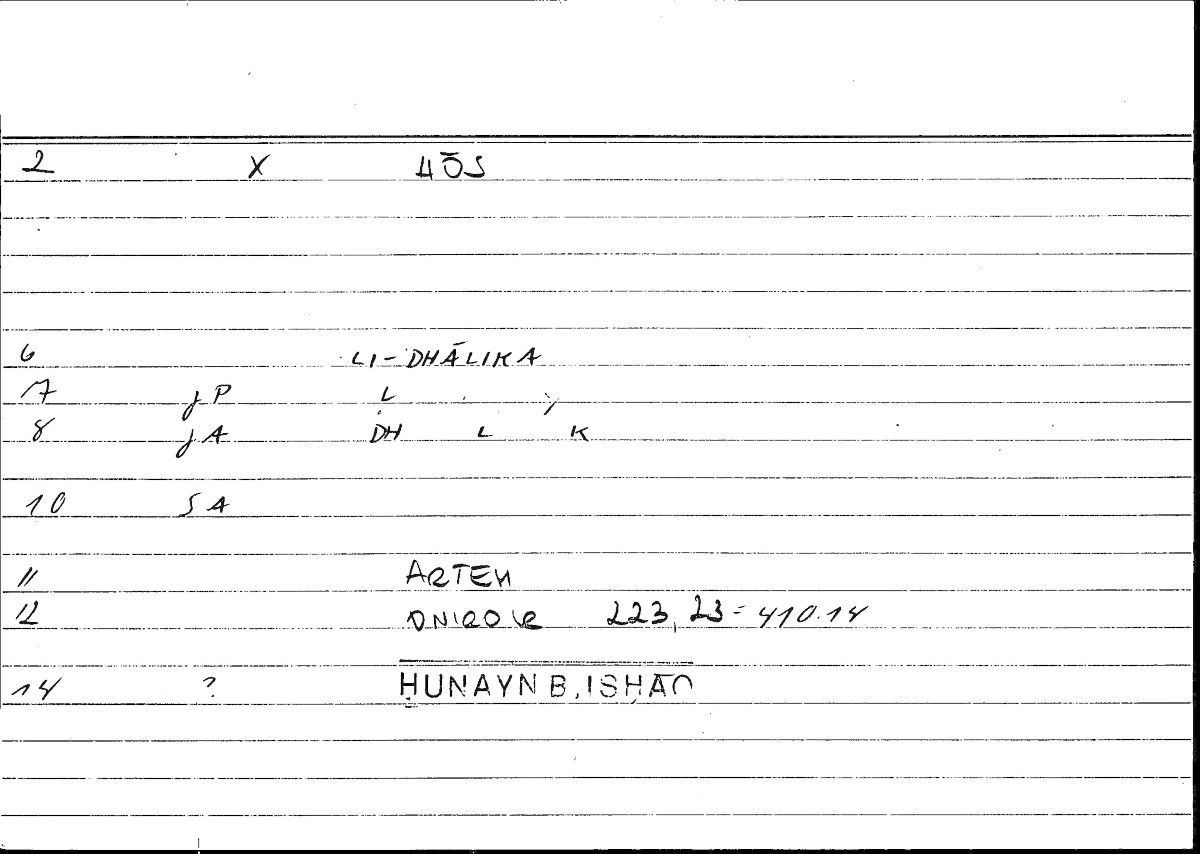 2 X HŌS
6 LI-DHĀLIKA
7 jP L
8 jA DH L K
10 SA
11 ARTEM
12 ONIROCR 223,23=410.14
14 ? ḤUNAYN B.ISḤĀQ